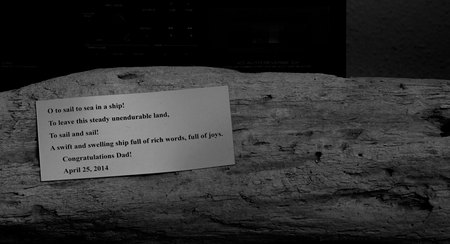 O to sail to sea in a ship!
To leave this steady unendurable land,
To sail and sail!
A swift and swelling ship full of rich words, full of joys.
Congratulations Dad!
April 25, 2014